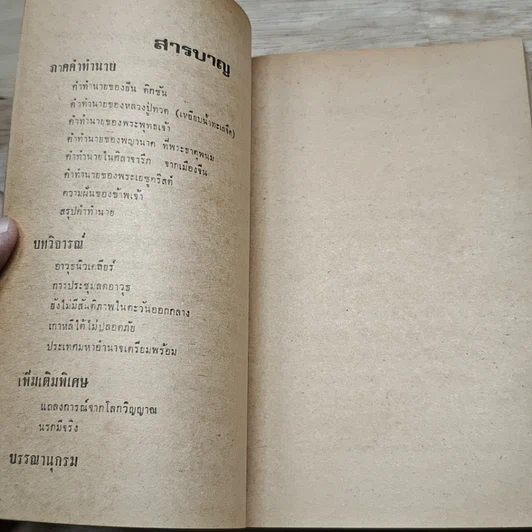 สารบาญ
ภาคคำทำนาย
คำทำนายของยีน ดิกซัน
คำทำนายของหลวงปู่ทวด (เหยียบน้ำทะเลจืด)
คำทำนายของพระพุทธเจ้า
คำทำนายของพญานาค ที่พระธาตุพนม
คำทำนายในศิลาจารึก จากเมืองจีน
คำทำนายของพระเยซูคริสต์
ความฝันของข้าพเจ้า
สรุปคำทำนาย
บทวิจารณ์
อาวุธนิวเคลียร์
การประชุมลดอาวุธ
ยังไม่มีสันติภาพในตะวันออกกลาง
เกาหลีใต้ไม่ปลอดภัย
ประเทศมหาอำนาจเตรียมพร้อม
เพิ่มเติมพิเศษ
แถลงการณ์จากโลกวิญญาณ
นรกมีจริง
บรรณานุกรม